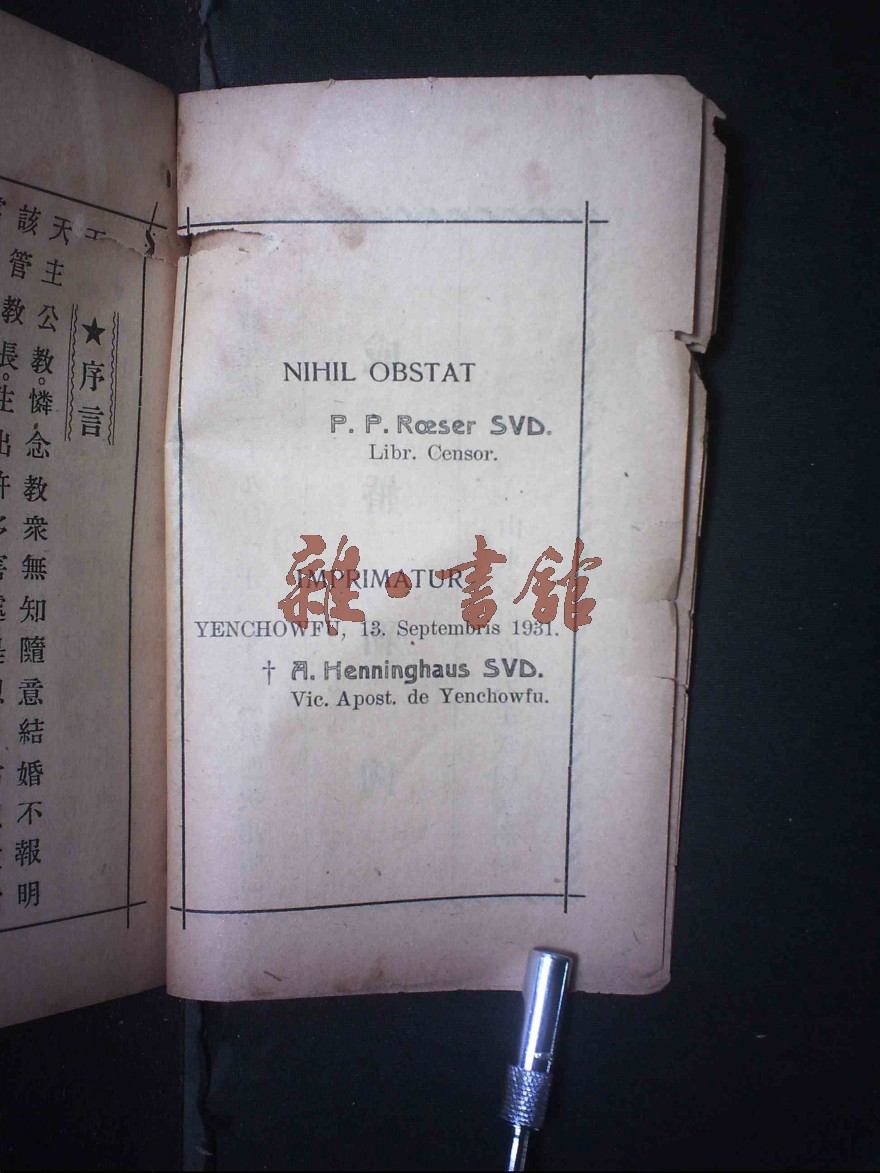 NIHIL OBSTAT
P. P. Rœser SVD.
Libr. Censor.
IMPRIMATUR
YENCHOWFU, 13. Septembris 1931.
† A. Henninghaus SVD.
Vic. Apost. de Yenchowfu.
雜·書館
★序言
天主公教。憐念教衆無知隨意結婚不報明
該管教長。生出許多害處